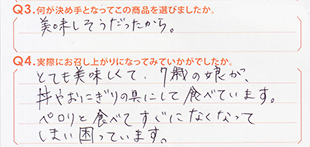 Q3.何が決め手となってこの商品を選びましたか。
美味しそうだったから。
Q4.実際にお召し上がりになってみていかがでしたか。
とても美味しくて、7歳の娘が、
丼やおにぎりの具にして食べています。
ペロリと食べてすぐになくなって
しまい困っています。